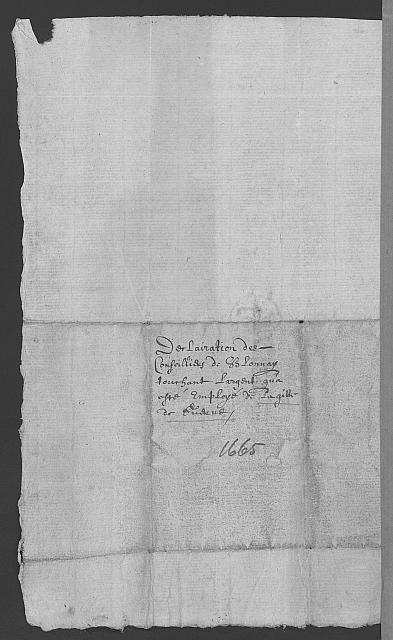 Declairation des
Conseilliers de Blonnay
touchant Largent qua
esté Employé de
de
1665